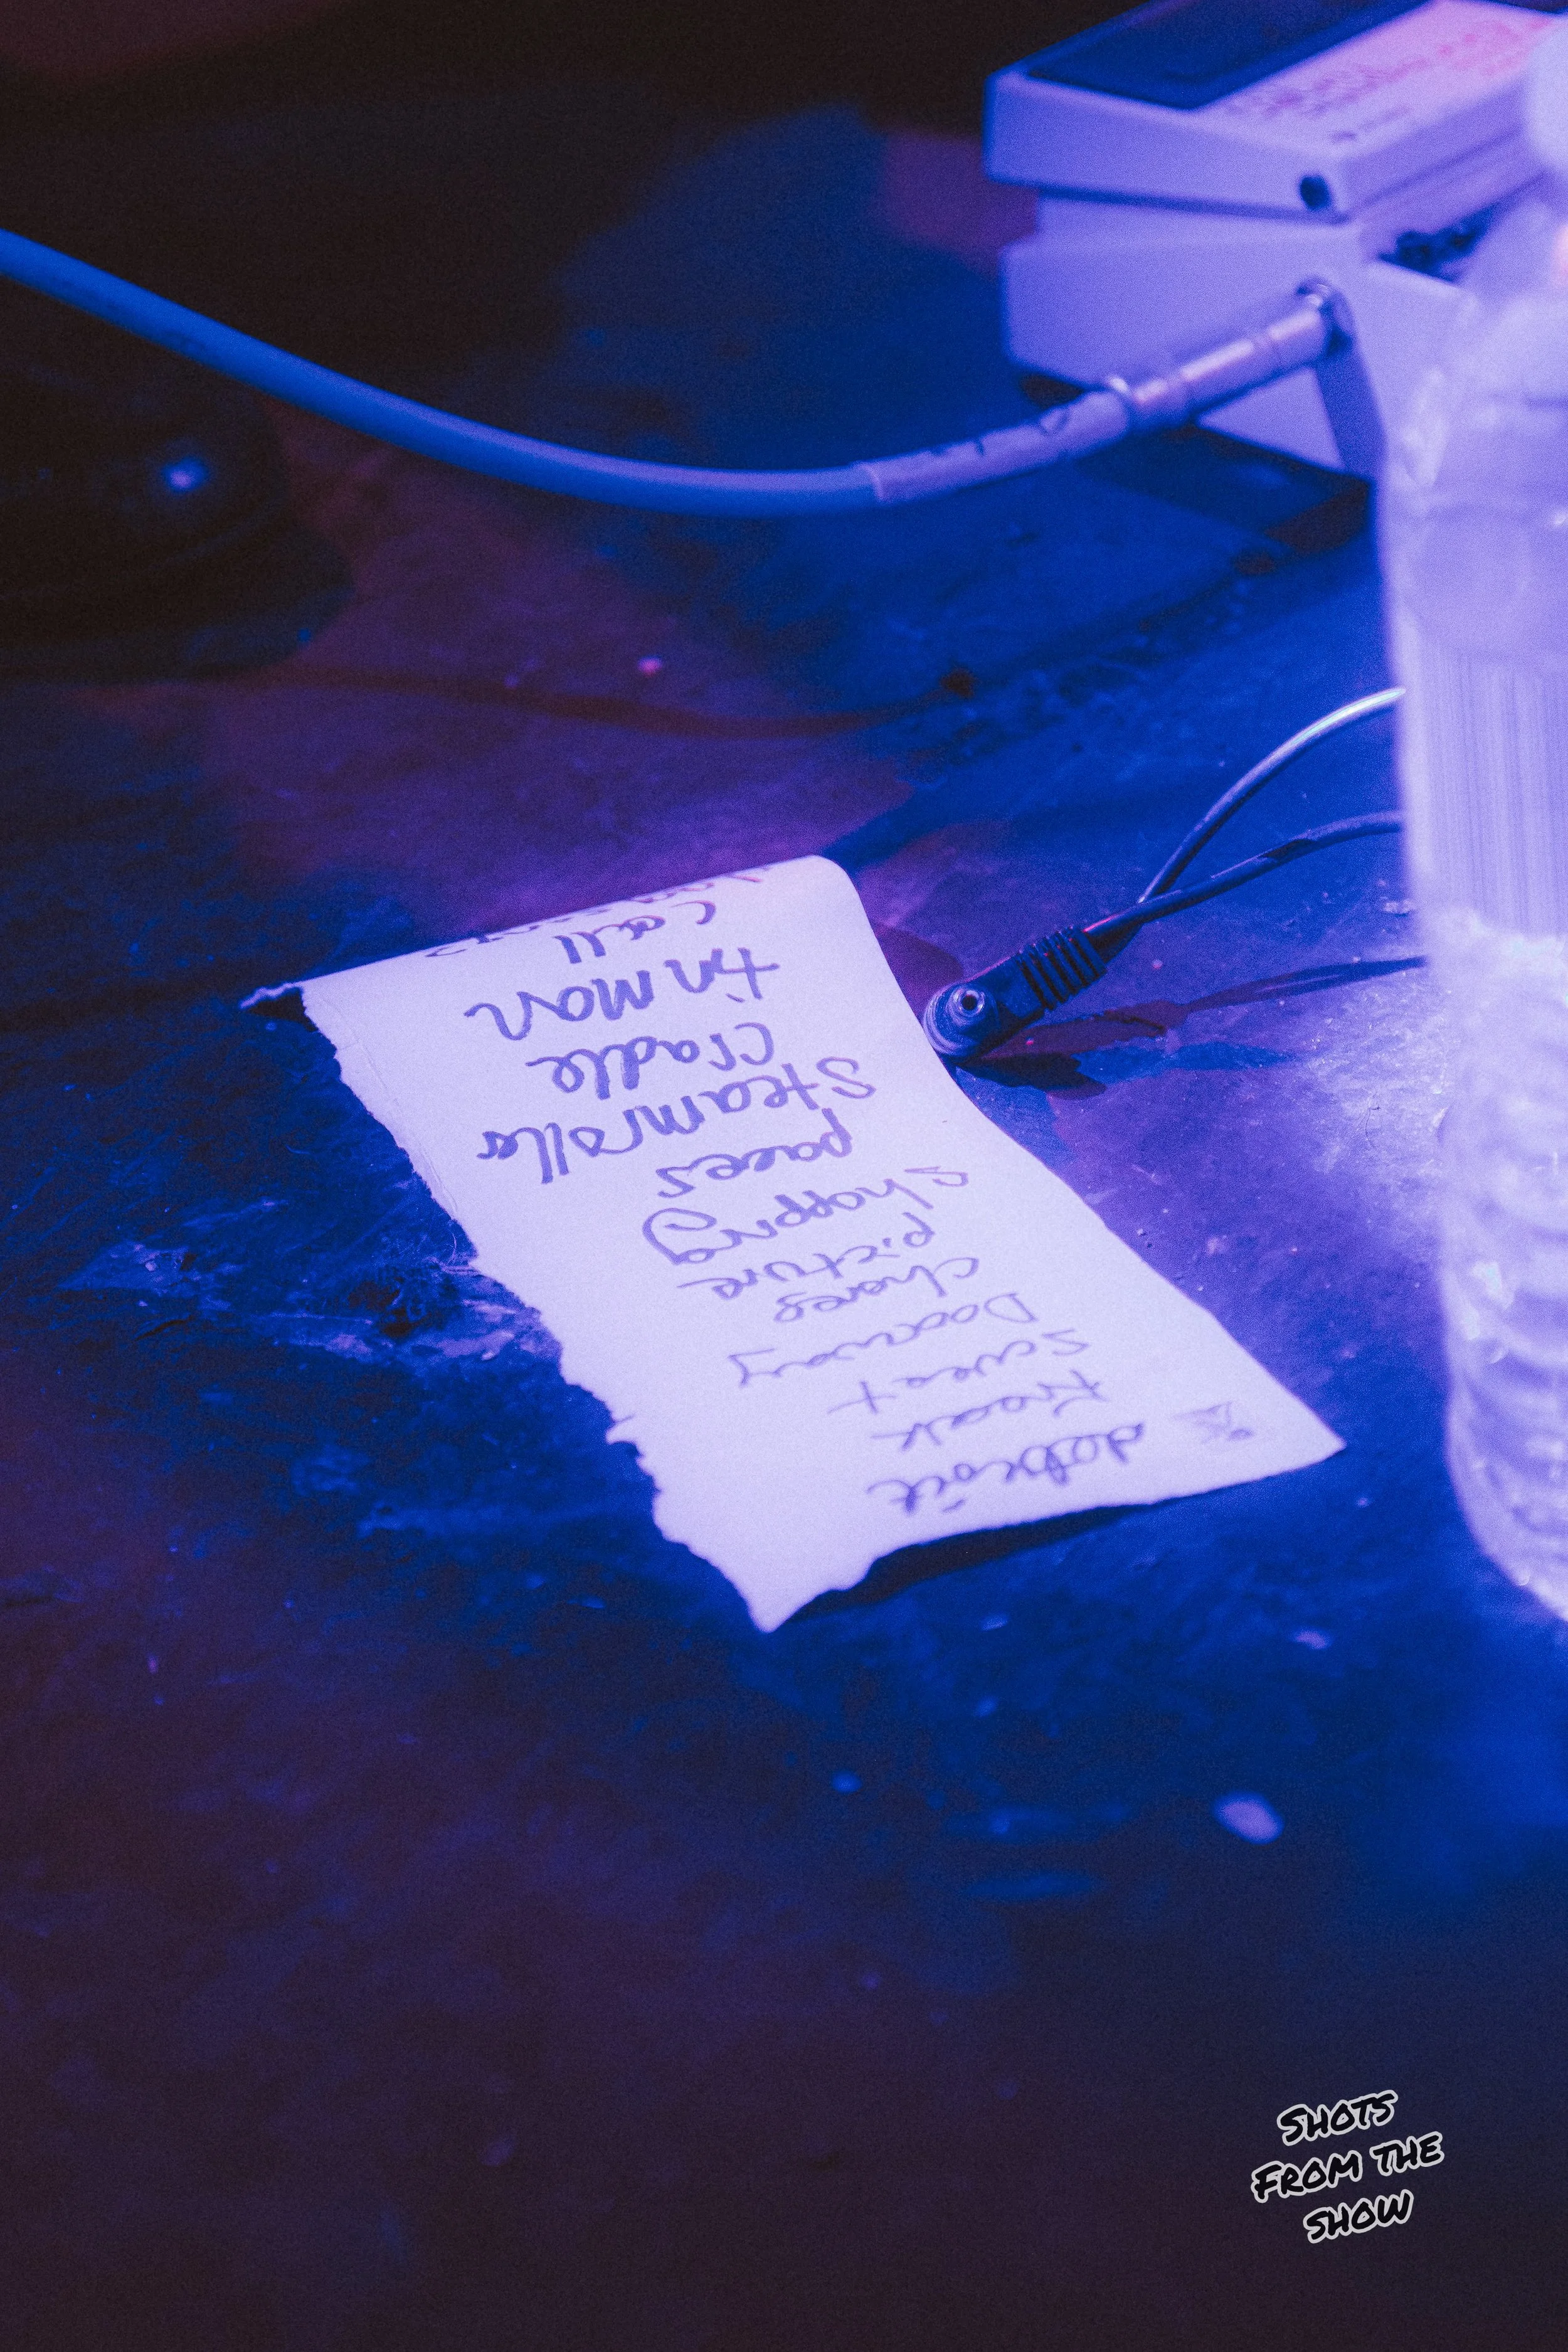 detroit
Sweat
Doorway
picture
shopping
paces
Steamroller
cradle
tin man
call
SHOTS
FROM THE
SHOW